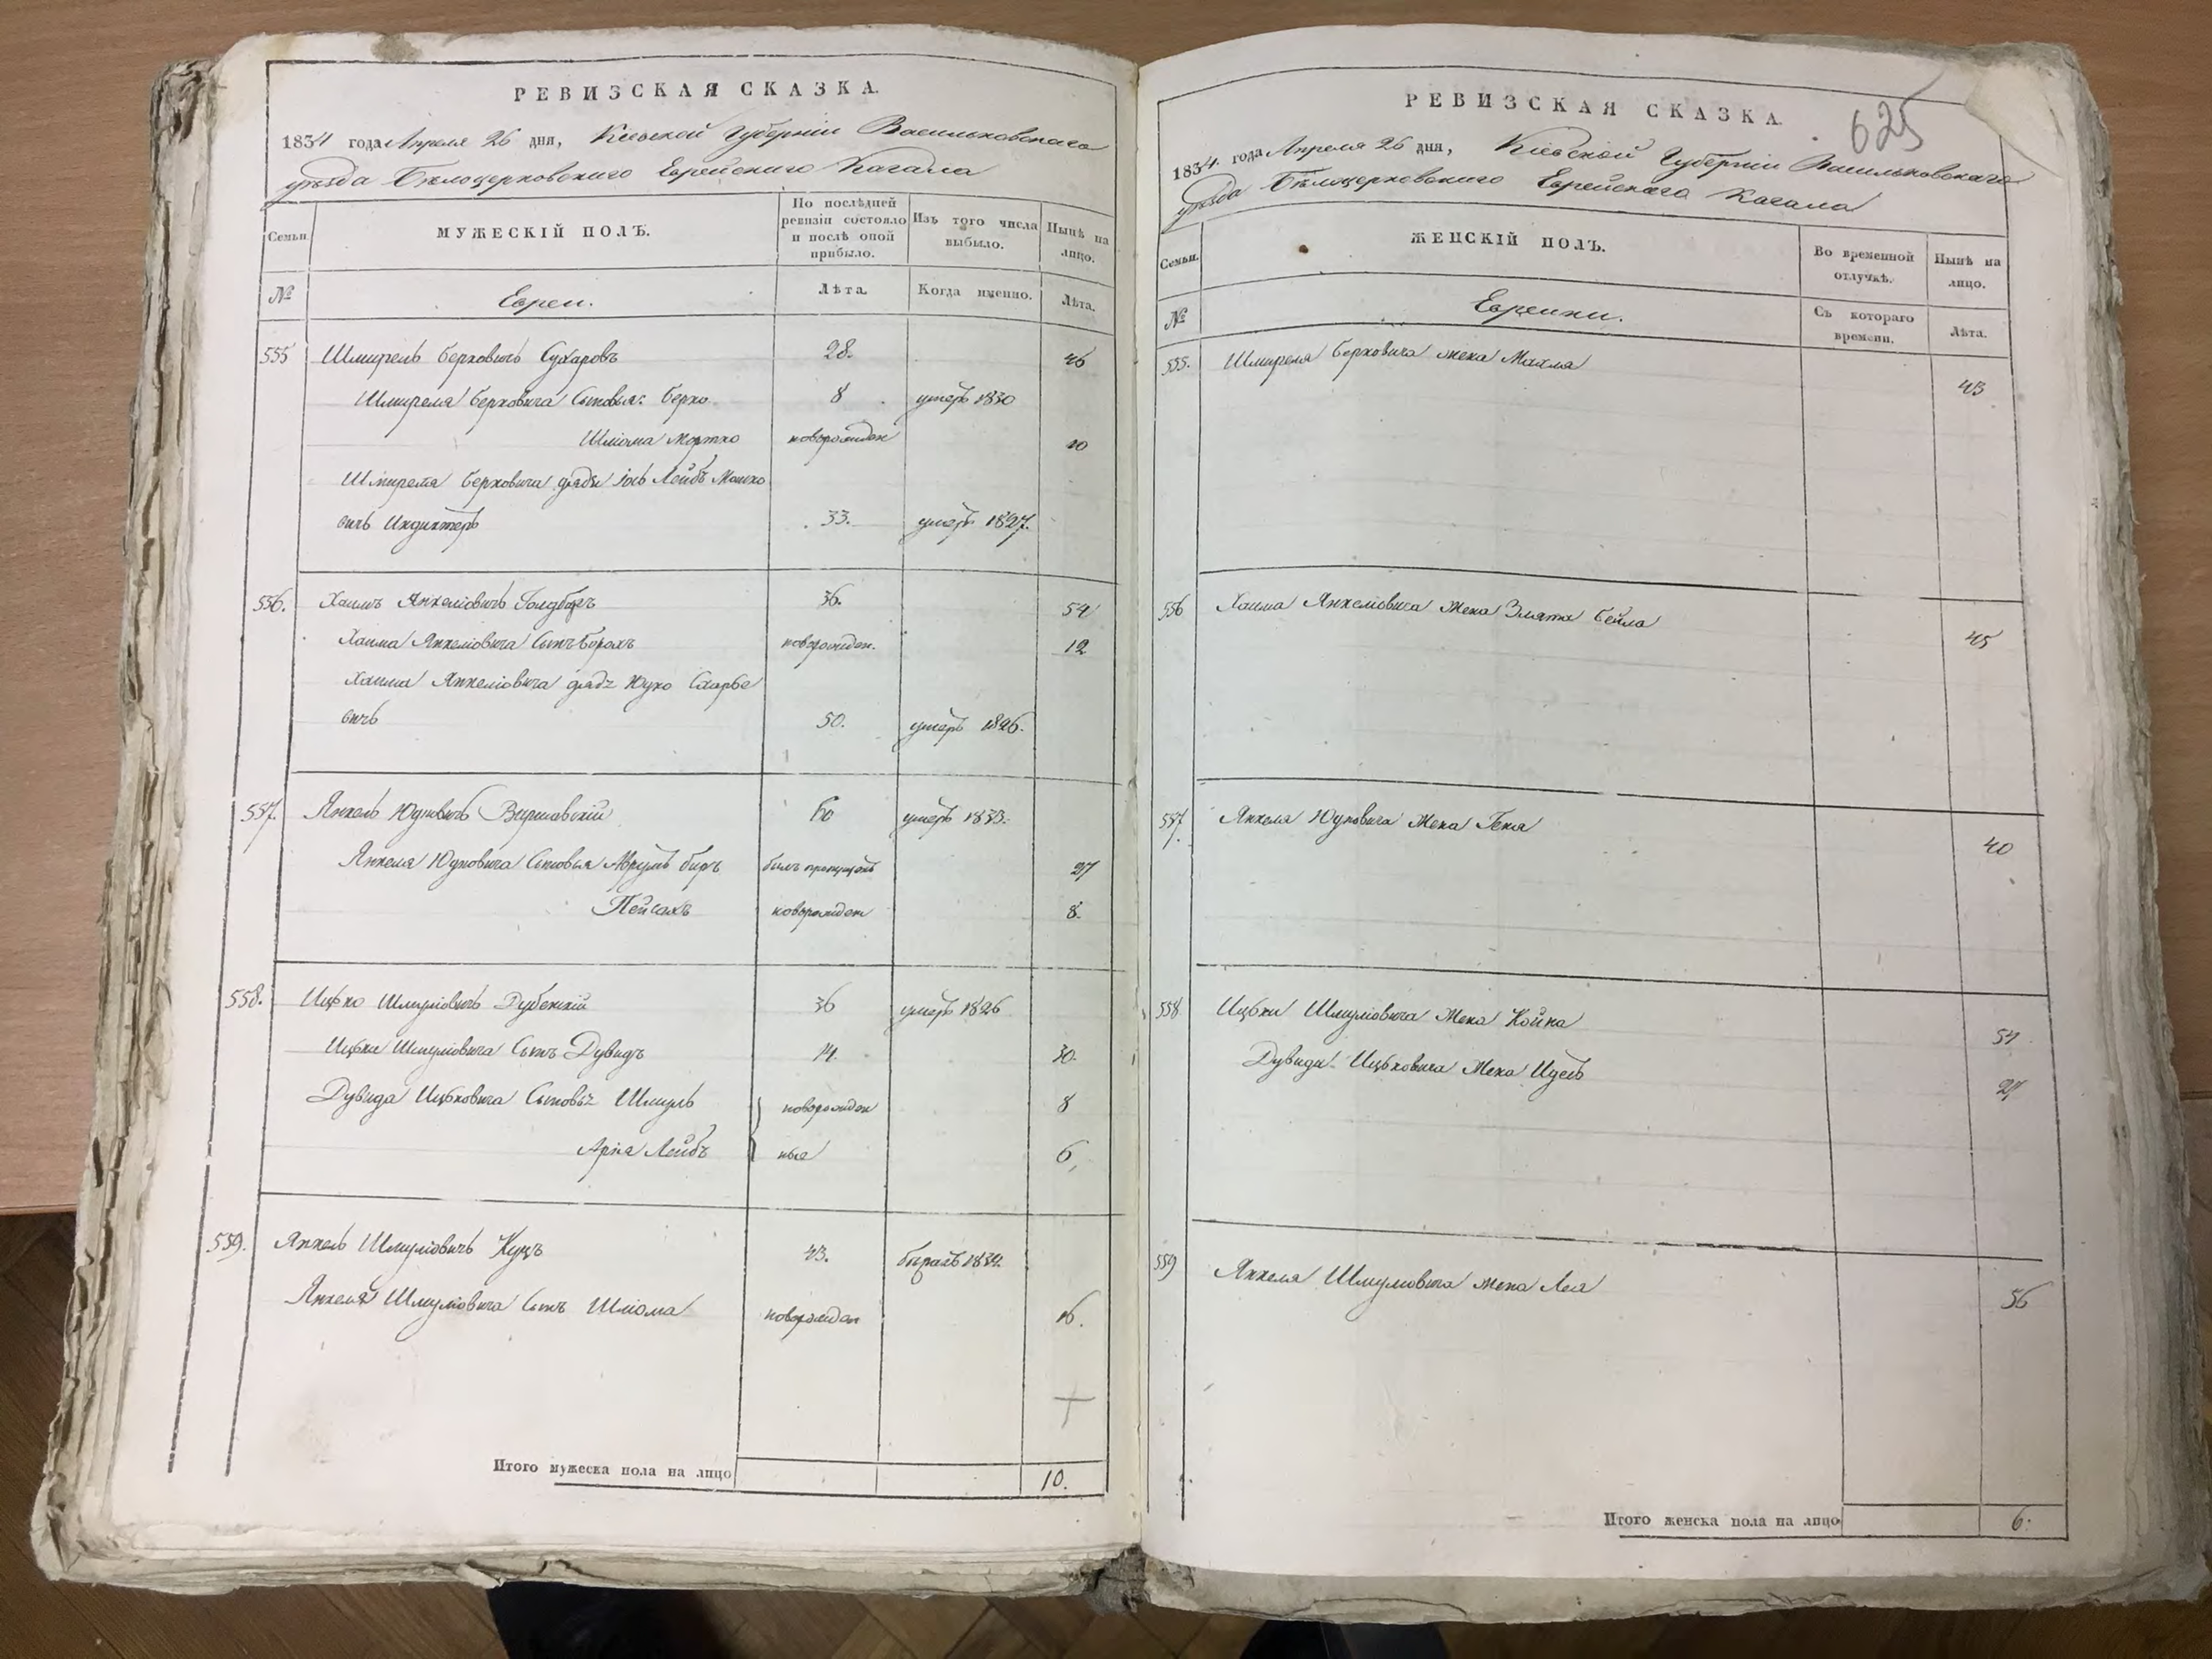 РЕВИЗСКАЯ СКАЗКА.
1834 года Апреля 26 дня, Кіевской Губерніи Васильковскаго
уѣзда Бѣлоцерковскаго Еврейскаго Кагала
Семьи.
МУЖЕСКІЙ ПОЛЪ.
По послѣдней
ревизіи состояло
и послѣ оной
прибыло.
Изъ того числа
выбыло.
Нынѣ на
лицо.
№
Евреи.
Лѣта.
Когда именно.
Лѣта.
555 Шмирель Берковичь Сухаровъ 28. 46
Шмиреля Берковича Сыновья: Берко 8 умеръ 1830
Шліома Мортко новорожден 10
Шмиреля Берковича дядя Іось Лейбъ Мошко
вичь 33. умеръ 1827.
556. Хаимъ Янкеліовичь Голдбергъ 36. 54
Хаима Янкеліовича Сынъ Борохъ новорожден. 12
Хаима Янкеліовича дядя
вичь 50. умеръ 1826.
557. Янкель Юдковичь Варшавскій 60 умеръ 1833.
Янкеля Юдковича Сыновья Аврумъ Беръ былъ пропущенъ 27
Пейсахъ новорожден 8.
558. Ицько Шмуліовичь Дубенскій 36 умеръ 1826
Ицька Шмуліовича Сынъ Дувидъ 14. 30.
Дувида Ицьковича Сыновья Шмуль новорожден 8
Арія Лейбъ ные 6,
559. Янкель Шмуліовичь Куцъ 43. 
Янкеля Шмуліовича Сынъ Шліома новорожден 16.
Итого мужеска пола на лицо 10.
РЕВИЗСКАЯ СКАЗКА.
625
1834. года Апреля 26 дня, Кіевской Губерніи Васильковскаго
уѣзда Бѣлоцерковскаго Еврейскаго Кагала
Семьи.
ЖЕНСКІЙ ПОЛЪ.
Во временной
отлучкѣ.
Нынѣ на
лицо.
№
Еврейки.
Съ котораго
времени.
Лѣта.
555. Шмиреля Берковича жена Махля
43
556 Хаима Янкеліовича жена Злата Бейла
45
557. Янкеля Юдковича жена Геня
40
558 Ицьки Шмуліовича жена Койна
54
Дувида Ицьковича жена Идесь
27
559 Янкеля Шмуліовича жена Лея
56
Итого женска пола на лицо 6.